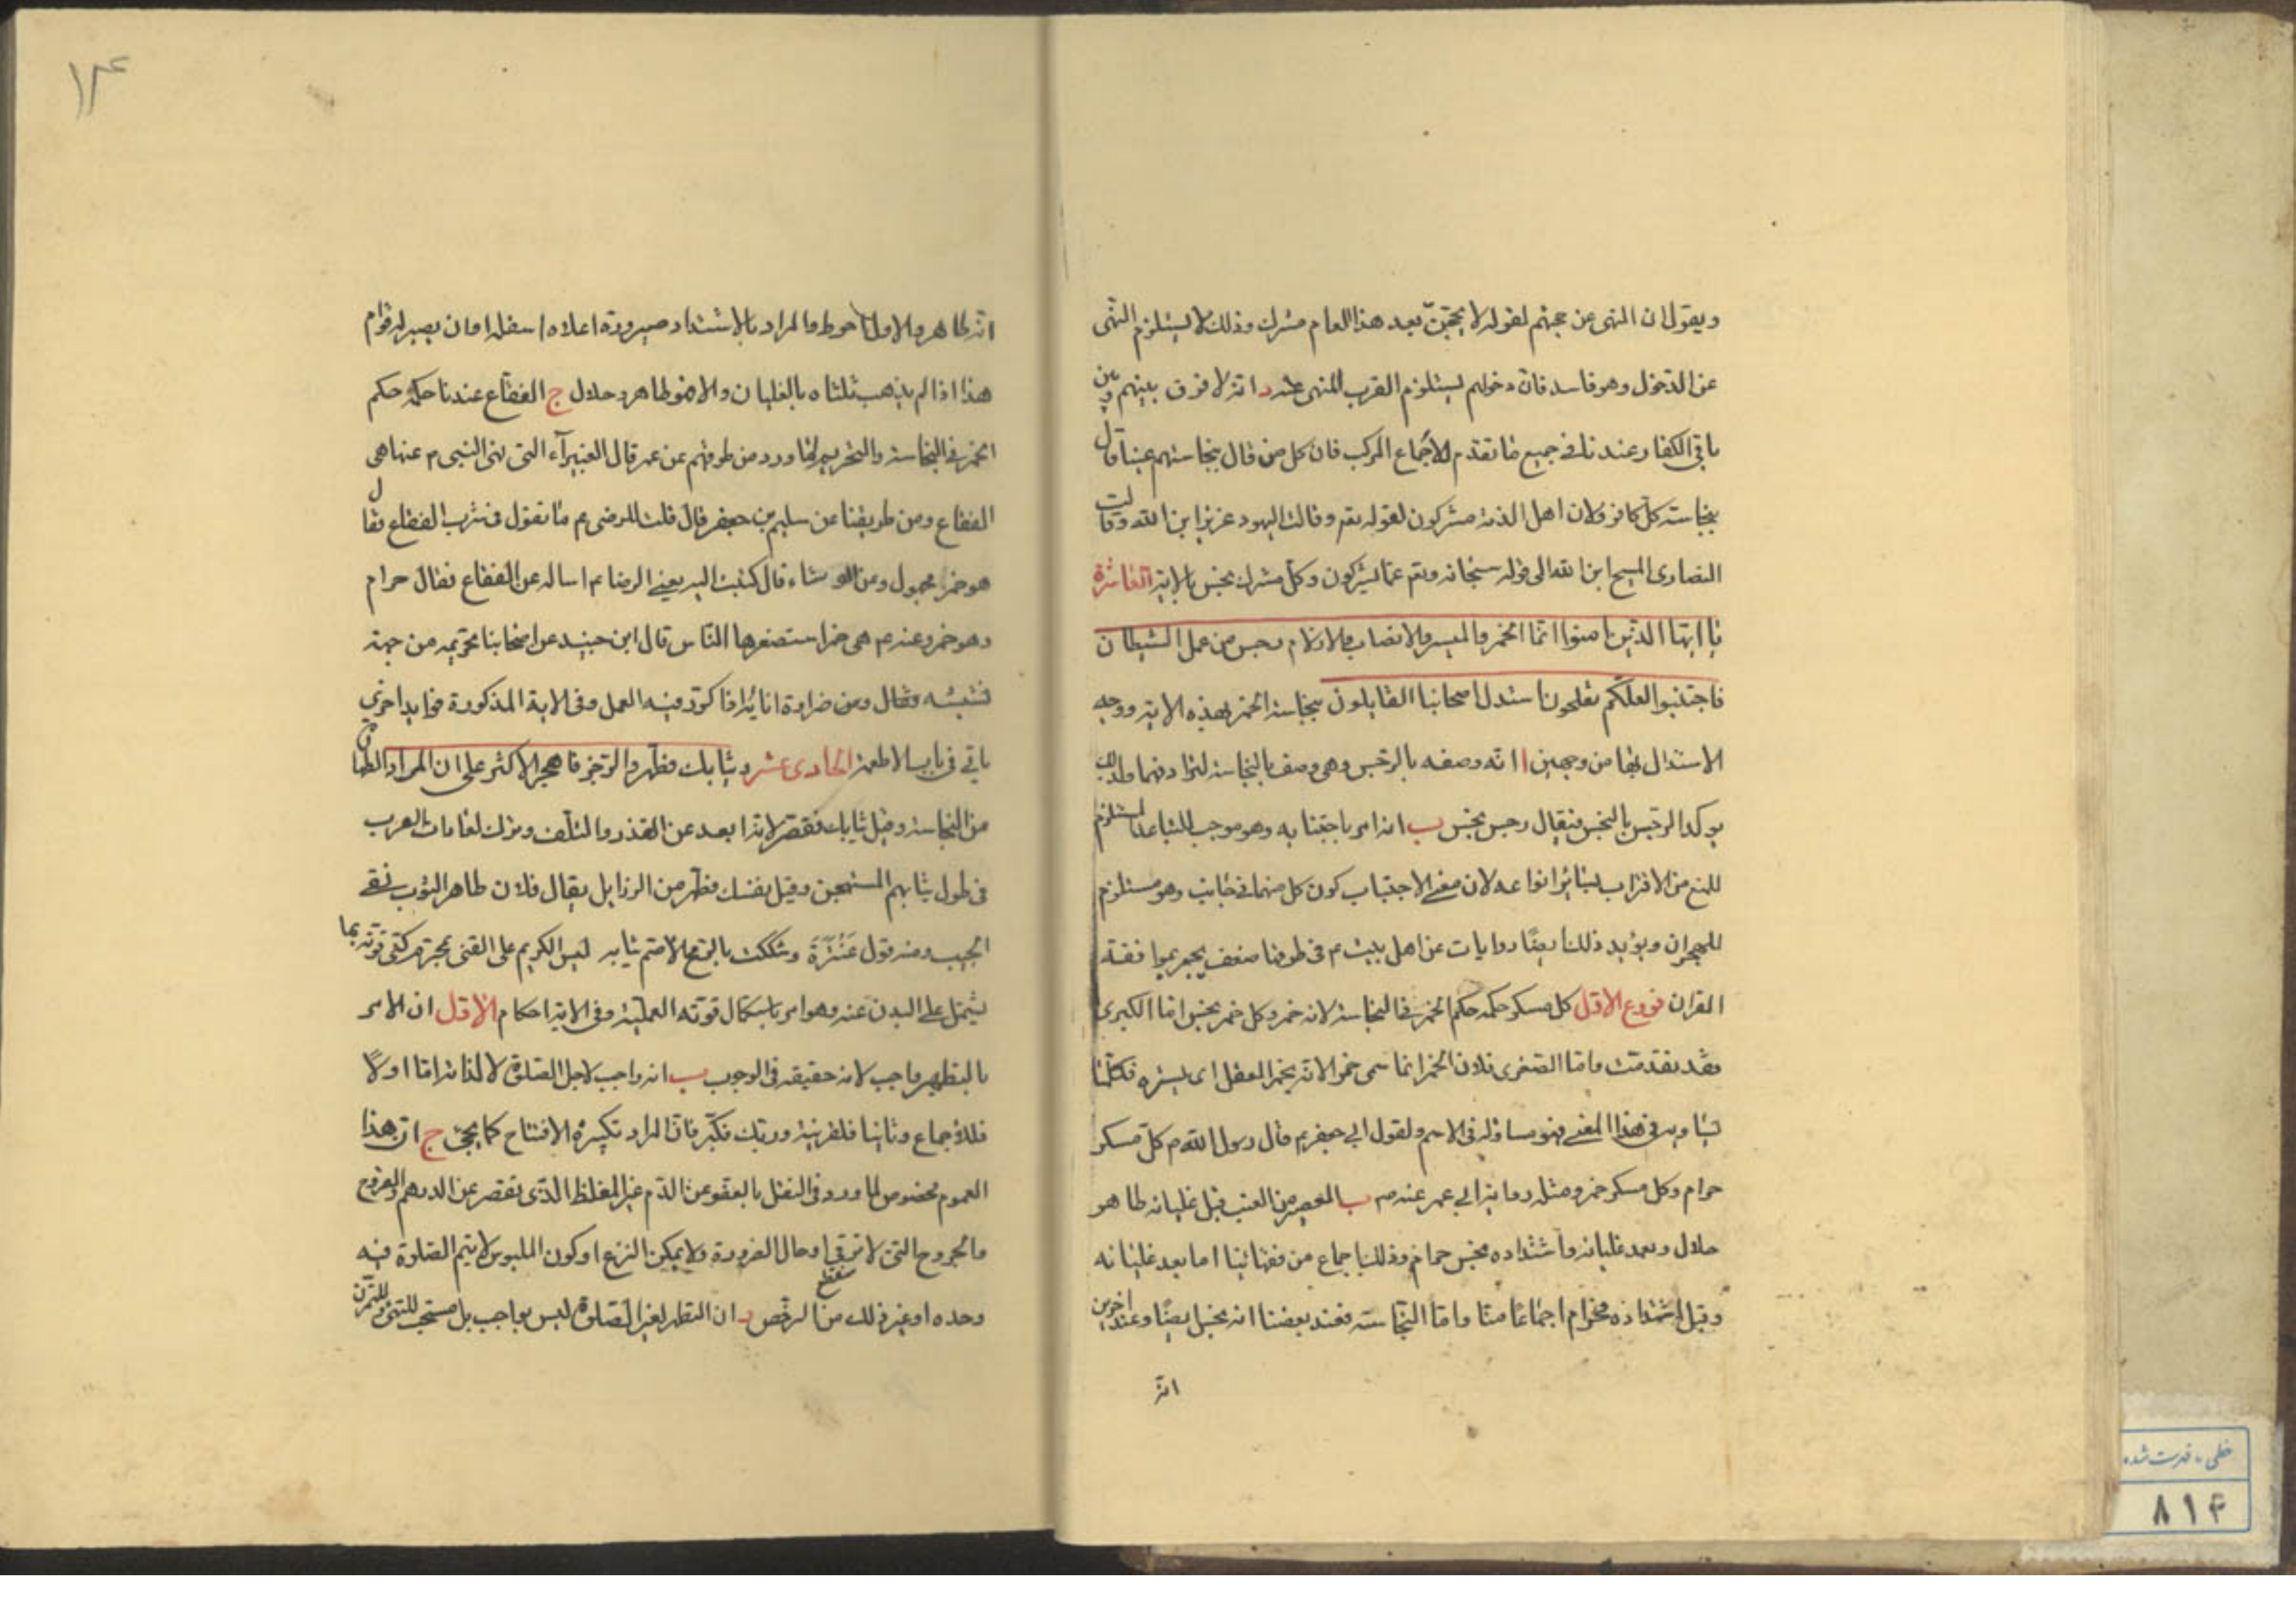 ويقول ان النهى عن حجهم لقوله لا يحجن بعد هذا العام مشرك وذلك لا يستلزم النهى
عن الدخول وهو فاسد فان دخولهم يستلزم القرب المنهى عنه د انه لا فرق بينهم وبين
باقى الكفار عندنا فى جميع ما تقدم للاجماع المركب فان كل من قال بنجاستهم عينا قال
بنجاسة كل كافر ولان اهل الذمة مشركون لقوله تعم وقالت اليهود عزير ابن الله وقالت
النصارى المسيح ابن الله الى قوله سبحانه وتعم عما يشركون وكل مشرك نجس بالاية العاشرة
يا ايها الذين امنوا انما الخمر والميسر والانصاب والازلام رجس من عمل الشيطان
فاجتنبوا لعلكم تفلحون استدل اصحابنا القايلون بنجاسة الخمر بهذه الاية ووجه
الاستدلال بها من وجهين ا انه وصفه بالرجس وهى وصف بالنجاسة لترادفهما ولذلك
يوكد الرجس بالنجس فيقال رجس نجس ب انه امر باجتنابه وهو موجب للتباعد المستلزم
للمنع من الاقتراب بسائر انواعه لان معنى الاجتناب كون كل منهما فى جانب وهو مستلزم
للهجران ويؤيد ذلك ايضا روايات عن اهل بيت م فى طرفنا ضعف ينجبر بموافقة
القران فروع الاول كل مسكر حكمه حكم الخمر فى النجاسة لانه خمر وكل خمر نجس اما الكبرى
فقد تقدمت واما الصغرى فلان الخمر انما سمى خمرا لانه يخمر العقل اى يستره فكلما
يساويه فى هذا المعنى فهو مساو له فى الاسم ولقول ابى جعفر م قال رسول الله م كل مسكر
حرام وكل مسكر خمر ومثله رواية ابى عمر عنه م ب العصير من العنب قبل غليانه طاهر
حلال وبعد غليانه واشتداده نجس حرام وذلك باجماع من فقهائنا اما بعد غليانه
وقبل اشتداده فحرام اجماعا منا واما النجاسة فعند بعضنا انه نجس ايضا وعند اخرين
انه
١٤
انه طاهر والاول احوط والمراد بالاشتداد صيرورة اعلاه اسفله او ان يصير له قوام
هذا اذا لم يذهب ثلثاه بالغليان والا فهو طاهر وحلال ج الفقاع عندنا حكمه حكم
الخمر فى النجاسة والتحريم لما ورد من طرقهم عن عمر قال الغبيرآء التى نهى النبى م عنها هى
الفقاع ومن طريقنا عن سليم بن جعفر قال قلت للرضى م ما تقول فى شرب الفقاع فقال
هو خمر مجهول وعن الوشاء قال كتبت اليه يعنى الرضا م اساله عن الفقاع فقال حرام
وهو خمر وعنه م هى خمر استصغرها الناس قال ابن جنيد عن اصحابنا تحريمه من جهة
نشيشه وقال ومن ضراوة انائه اذا كرر فيه العمل وفى الاية المذكورة فوايد اخرى
ياتى فى باب الاطعمة الحادى عشر وثيابك فطهر والرجز فاهجر الاكثر على ان المراد الطهارة
من النجاسة وقيل ثيابك فقصر لانه ابعد عن القذر والتلف وترك لعادات العرب
فى طول ثيابهم المستهجن وقيل نفسك فطهر من الرزايل يقال فلان طاهر الثوب نقى
الجيب ومنه قول عنترة وشككت بالرمح الاصم ثيابه ليس الكريم على القنى بمحرم
يشتمل على البدن عنه وهو امر باستكمال قوته العملية وفى الاية احكام الاول ان الامر
بالتطهير واجب لانه حقيقة فى الوجوب ب انه واجب لاجل الصلوة لا لذاته اما اولا
فللاجماع وثانيا فلقرينة وربك فكبر فان المراد تكبيرة الافتتاح كما يجئ ج ان هذا
العموم مخصوص لما ورد فى النقل بالعفو عن الدم غير المغلظ الذى نقص عن الدرهم والقروح
والجروح التى لا ترقى او حال الضرورة ولا يمكن النزع او كون الملبوس لا يتم الصلوة فيه
وحده او غير ذلك من الرخص د ان التطهر لغير الصلوة ليس بواجب بل مستحب
خطى - فهرست شده
٨١٤